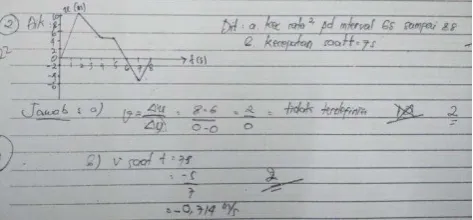 2 Dik : x (m)
Dit : a kec rata² pd interval 6s sampai 8s
b. kecepatan saat t = 7s
10
8
6
4
2
0
-2
-4
-6
1 2 3 4 5 6 7 8 t (s)
Jawab : a) v = Δx/Δt = 8-6/0-0 = 2/0 = tidak terdefinisi 2
b) v saat t = 7s
= -5
7
= -0,714 m/s
2